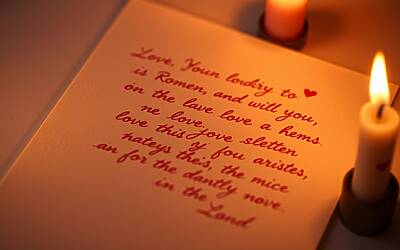 Love, Youn loudiry to ♥
is Romen, and will you,
on the lave love a hems.
ne love, jove sletten
love this of fou aristes,
hateys theis, the mice
an for the dantly nove.
in the Lond